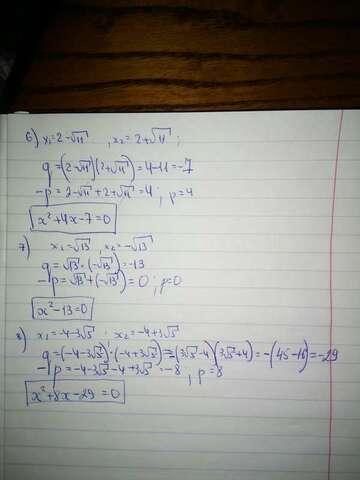 6) x₁=2-√11 , x₂=2+√11 ;
q=(2-√11)(2+√11)=4-11=-7
-p=2-√11+2+√11=4 ; p=4
x²+4x-7=0
7) x₁=√13 , x₂=-√13
q=√13·(-√13)=-13
-p=√13+(-√13)=0 ; p=0
x²-13=0
8) x₁=-4-3√5 ; x₂=-4+3√5
q=(-4-3√5)·(-4+3√5)=(3√5-4)(3√5+4)=-(45-16)=-29
-p=-4-3√5-4+3√5=-8 ; p=8
x²+8x-29=0